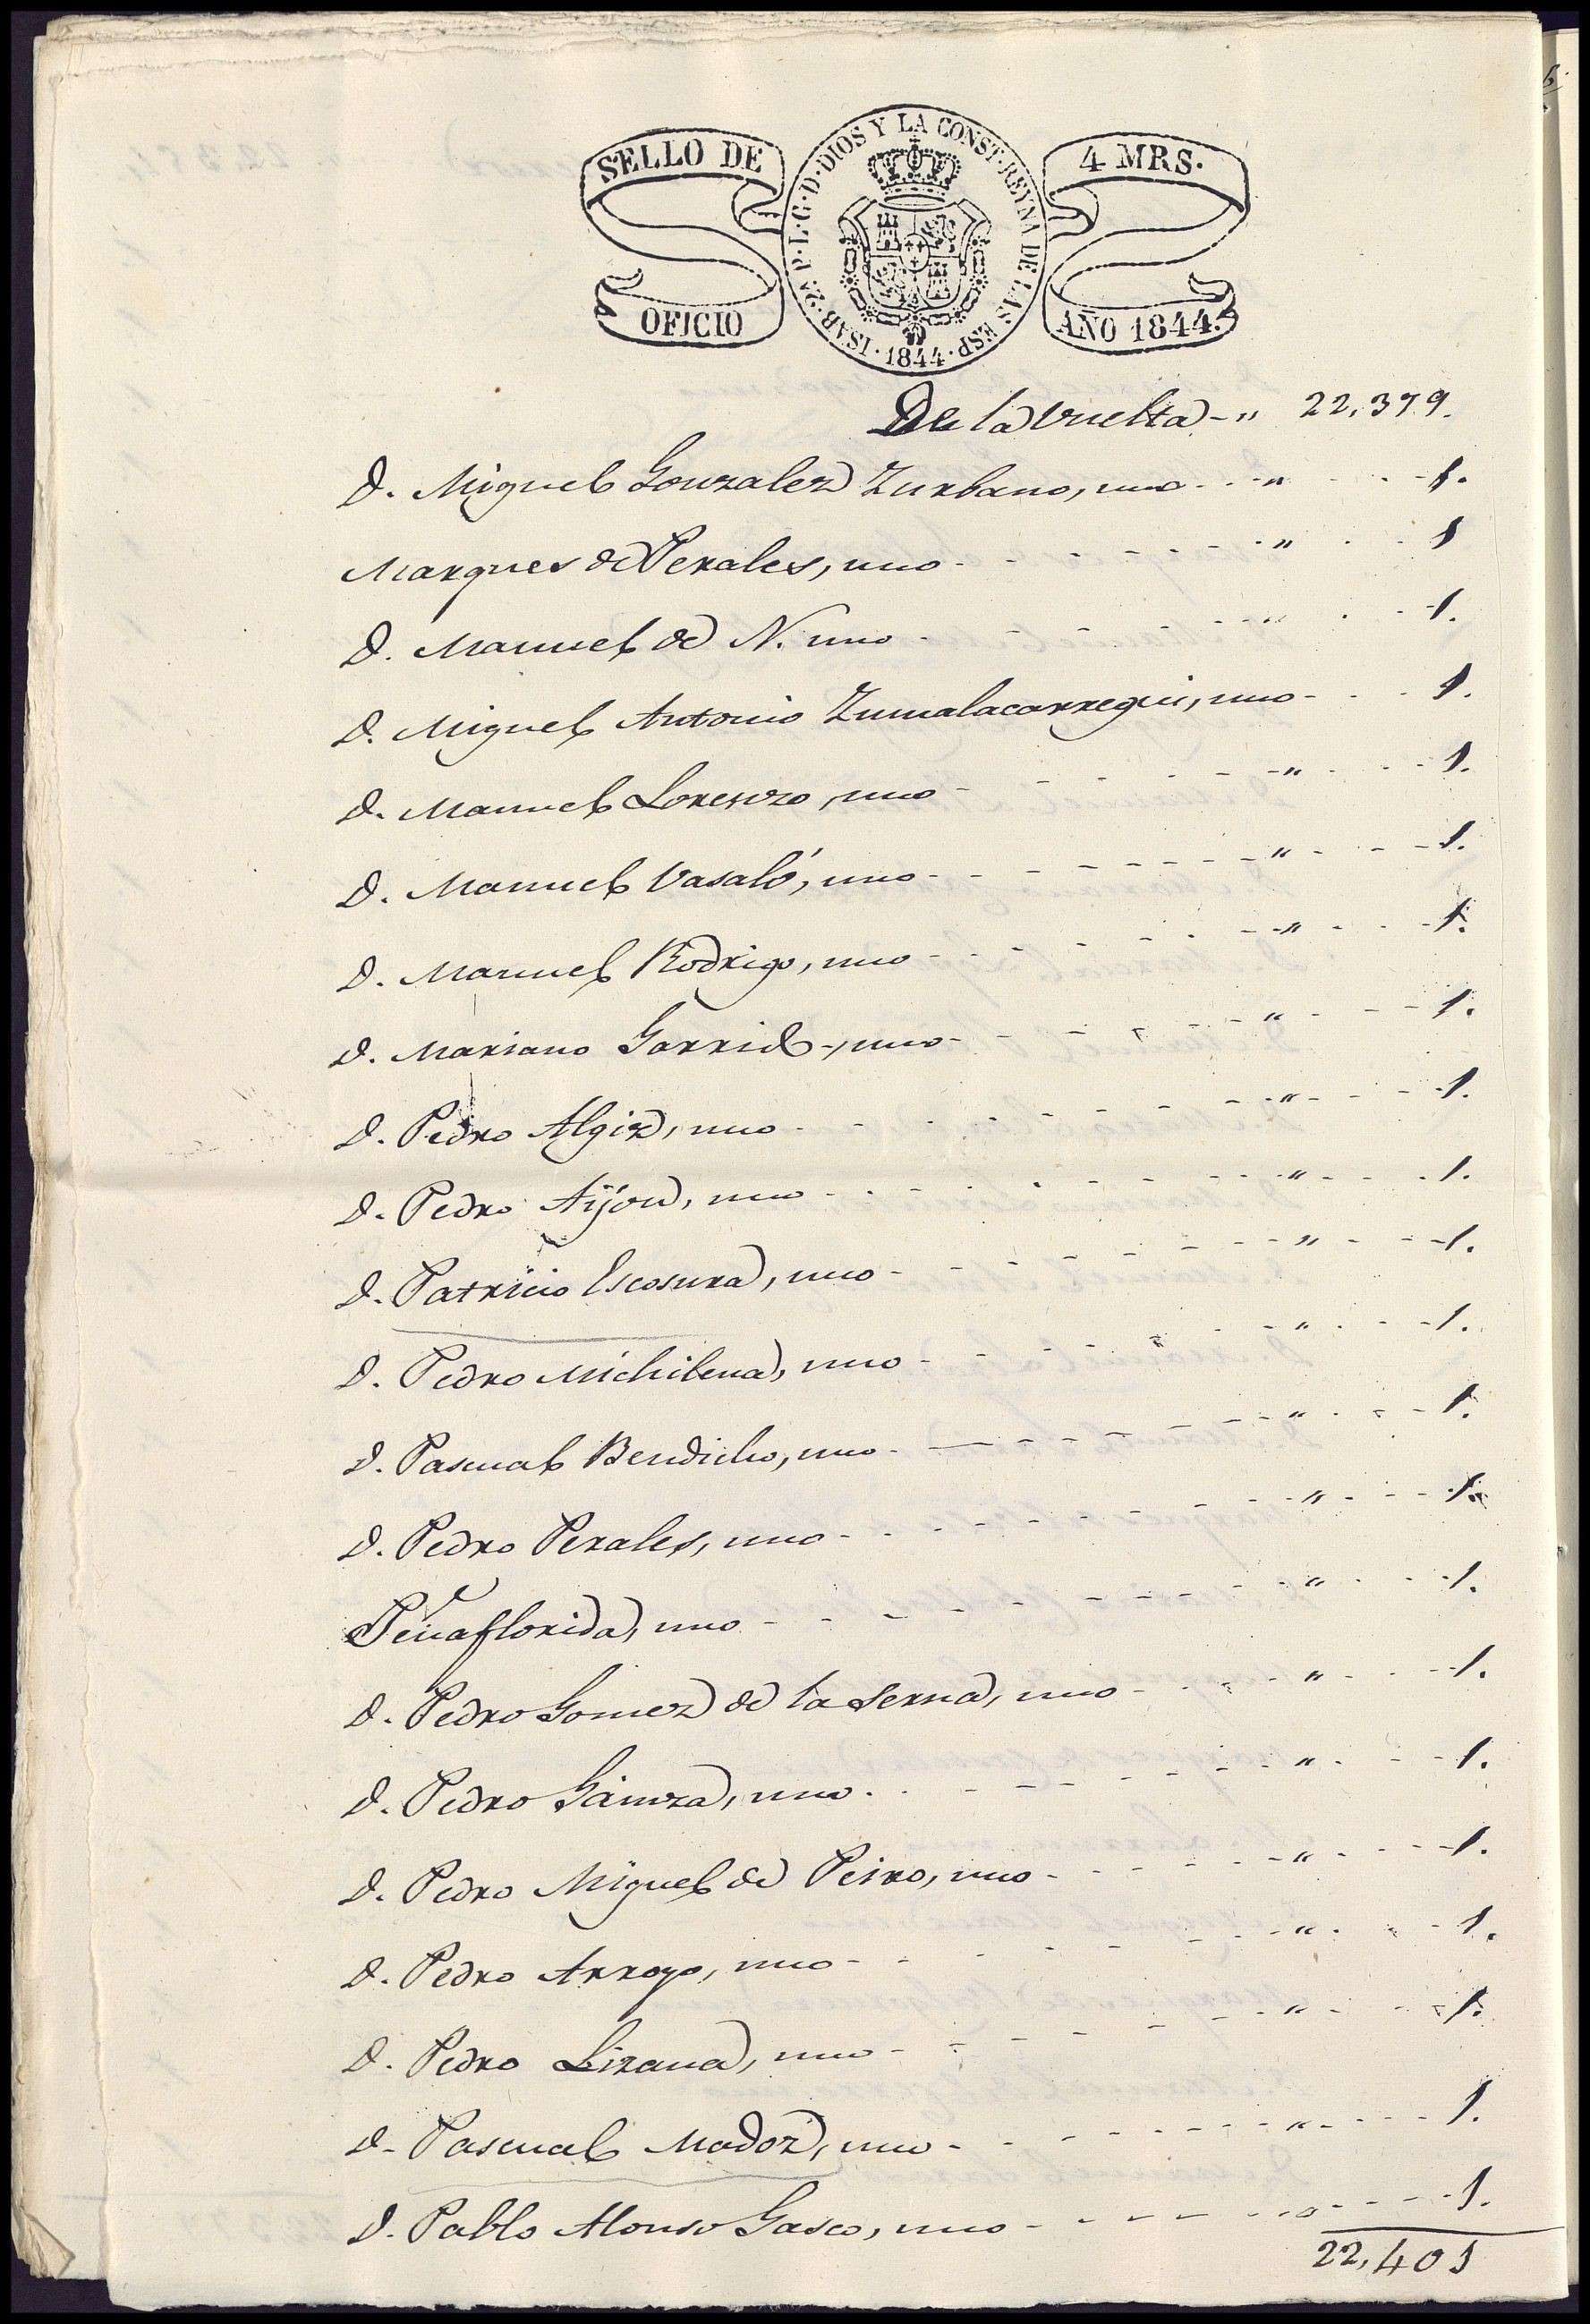 SELLO DE OFICIO
ISAB·2ª P·L·G·D·DIOS Y LA CONST·REYNA DE LAS·ESP·1844·
4 MRS. AÑO 1844.
De la vuelta-" 22,379.
D. Miguel Gonzalez Zurbano, uno - - " - - - 1.
Marques de Perales, uno - - - - - - " - - 1
D. Manuel de N. uno - - - - - - " - - 1.
D. Miguel Antonio Zumalacarregui, uno - - - 1.
D. Manuel Lorenzo, uno - - - - - - " - - - 1.
D. Manuel Vasaló, uno - - - - - - " - - - 1.
D. Manuel Rodrigo, uno - - - - - - " - - - 1.
D. Mariano Garrido, uno - - - - - - " - - - 1.
D. Pedro Algiz, uno - - - - - - " - - - 1.
D. Pedro Aijon, uno - - - - - - " - - - 1.
D. Patricio Escosura, uno - - - - - - " - - - 1.
D. Pedro Michilena, uno - - - - - - " - - - 1.
D. Pascual Bendicho, uno - - - - - - " - - - 1.
D. Pedro Perales, uno - - - - - - " - - - 1.
Peñaflorida, uno - - - - - - " - - - 1.
D. Pedro Gomez de la Serna, uno - - - " - - - 1.
D. Pedro Gainza, uno - - - - - - " - - - 1.
D. Pedro Miguel de Peiro, uno - - - - - " - - - 1.
D. Pedro Arroyo, uno - - - - - - " - - - 1.
D. Pedro Lizana, uno - - - - - - " - - - 1.
D. Pascual Madoz, uno - - - - - - " - - - 1.
D. Pablo Alonso Gasco, uno - - - - - - " - - - 1.
22,401